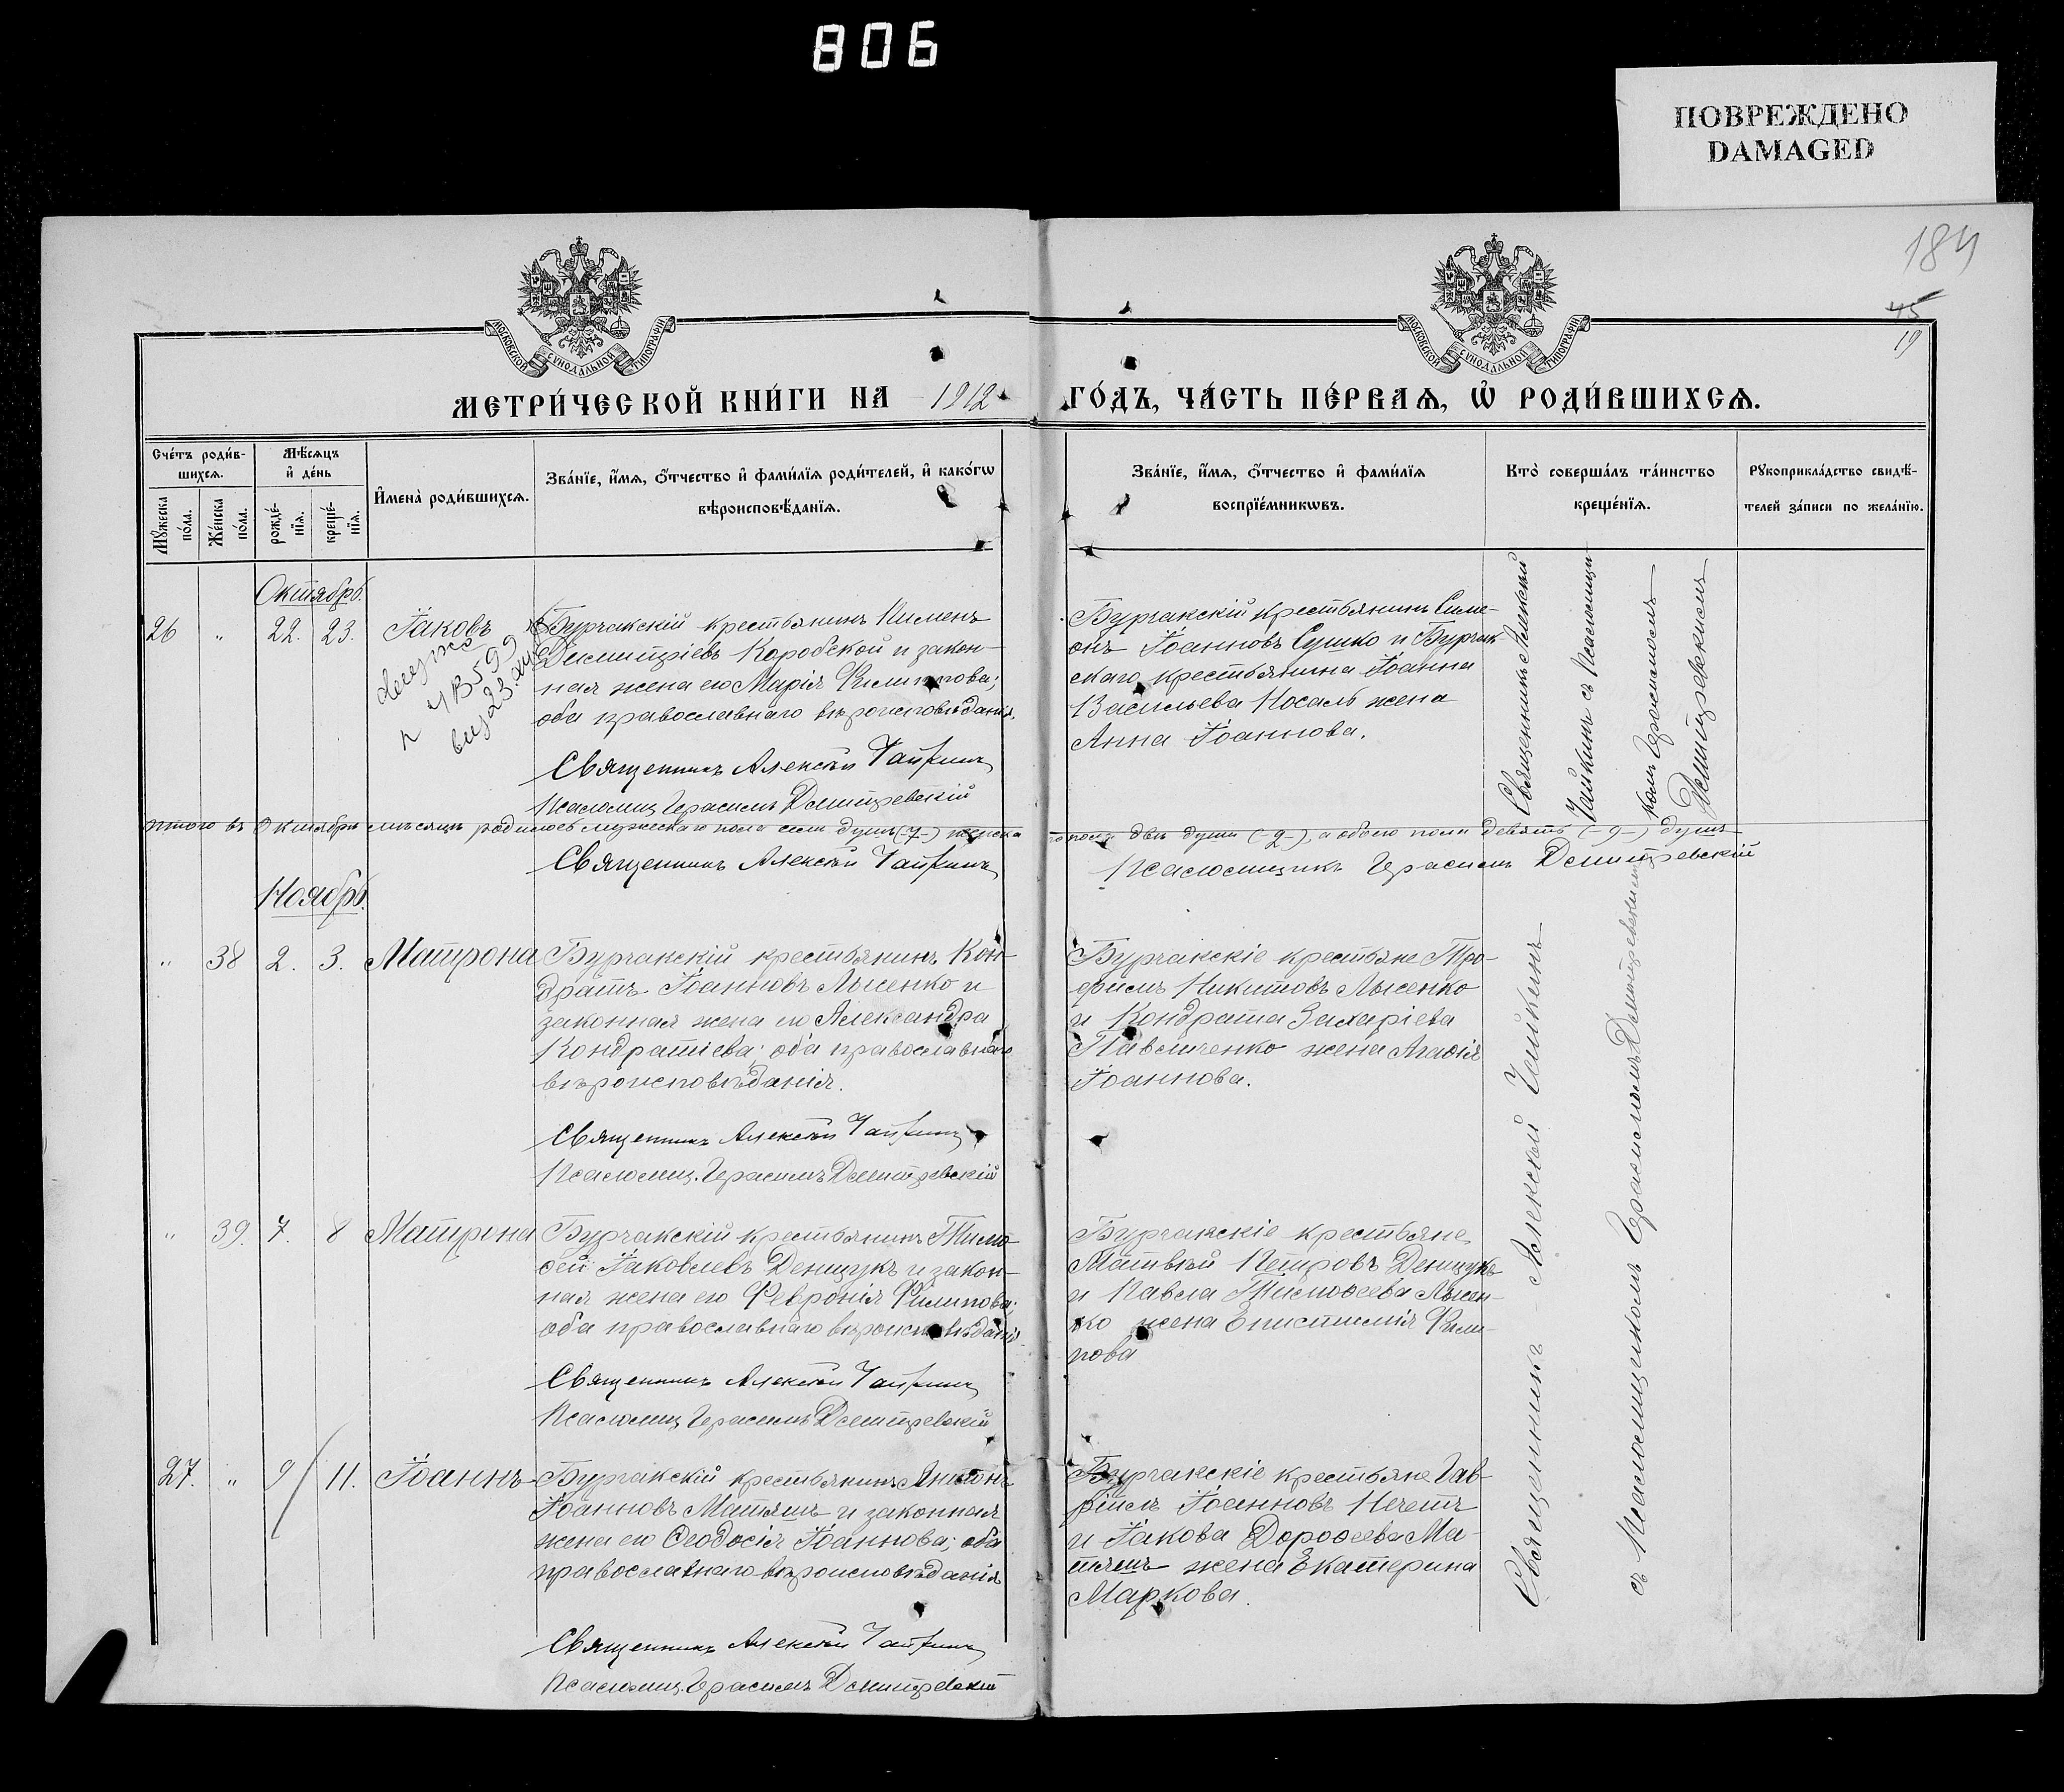 806
ПОВРЕЖДЕНО
DAMAGED
184
45
19
МОСКОВСКОЙ СѴНОДАЛЬНОЙ ТИПОГРАФІИ
МОСКОВСКОЙ СѴНОДАЛЬНОЙ ТИПОГРАФІИ
МЕТРИ́ЧЕСКОЙ КНИ́ГИ НА 1912
ГО́ДЪ, ЧА́СТЬ ПЕ́РВАѦ, Ѡ҆ РОДИ́ВШИХСѦ.
Сче́тъ роди́в-
шихсѧ.
Мꙋ́жеска
по́ла.
Же́нска
по́ла.
Мѣ́сѧцъ
и҆ де́нь
рожде́-
нїѧ.
креще́-
нїѧ.
И҆мена̀ роди́вшихсѧ.
Зва́нїе, и҆́мѧ, ѻ҆́тчество и҆ фами́лїѧ роди́телей, и҆ како́гѡ
вѣроисповѣ́данїѧ.
Зва́нїе, и҆́мѧ, ѻ҆́тчество и҆ фами́лїѧ
воспрїе́мникѡвъ.
Кто̀ соверша́лъ та́инство
креще́нїѧ.
Рꙋкоприкла́дство свидѣ́-
телей за́писи по жела́нїю.
Октябрь.
26 " 22. 23. Іаковъ
Бурчакскій крестьянинъ Пименъ
Димитріевъ Коробской и закон-
ная жена его Марія Филиппова;
оба православнаго вѣроисповѣданія.
Священникъ Алексѣй Чайкинъ
Псаломщ. Герасимъ Дмитревскій
Бурчакскій крестьянинъ Симе-
онъ Іоанновъ Сушко и Бурчак-
скаго крестьянина Іоанна
Васильева Носаль жена
Анна Іоаннова.
Священникъ Алексѣй
Чайкинъ съ Псаломщи
комъ Герасимомъ
Дмитревскимъ
Итого въ Октябрѣ мѣсяцѣ родилось мужескаго пола семь душъ (-7-) женска
го пола двѣ души (-2-), а обоего пола девять (-9-) душъ
Священникъ Алексѣй Чайкинъ
Псаломщикъ Герасимъ Дмитревскій
Ноябрь.
" 38 2. 3. Матрона
Бурчакскій крестьянинъ Кон-
дратъ Іоанновъ Лысенко и
законная жена его Александра
Кондратіева; оба православнаго
вѣроисповѣданія.
Священникъ Алексѣй Чайкинъ
Псаломщ. Герасимъ Дмитревскій
Бурчакскіе крестьяне Тро-
фимъ Никитовъ Лысенко
и Кондрата Захаріева
Павличенко жена Агафія
Іоаннова.
" 39. 7. 8 Матрона
Бурчакскій крестьянинъ Тимо-
ѳей Іаковлевъ Денщукъ и закон-
ная жена его Февронія Филипова;
оба православнаго вѣроисповѣданія
Священникъ Алексѣй Чайкинъ
Псаломщ. Герасимъ Дмитревскій
Бурчакскіе крестьяне
Матвѣй Петровъ Денщукъ
и Павла Тимоѳеева Лысен-
ко жена Епистимія Фили-
пова
27. " 9 11. Іоаннъ
Бурчакскій крестьянинъ Антонъ
Іоанновъ Матяшъ и законная
жена его Ѳеодосія Іоаннова; оба
православнаго вѣроисповѣданія
Священникъ Алексѣй Чайкинъ
Псаломщ. Герасимъ Дмитревскій
Бурчакскіе крестьяне Гав-
ріилъ Іоанновъ Нечетъ
и Іакова Дороѳеева Ма-
тяшъ жена Екатерина
Маркова.
Священникъ Алексѣй Чайкинъ
съ Псаломщикомъ Герасимомъ Дмитревскимъ